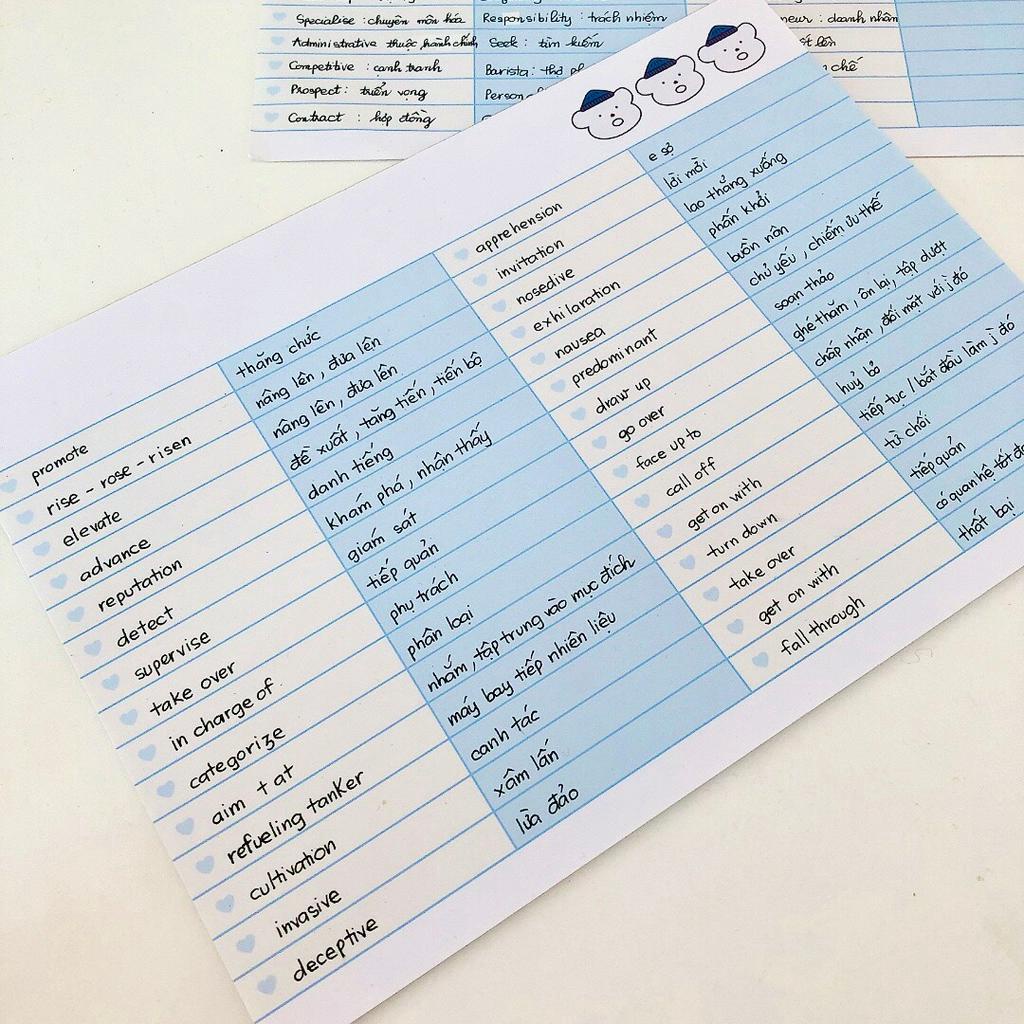 Specialise : chuyên môn hóa
Administrative thuộc hành chính
Competitive : cạnh tranh
Prospect : triển vọng
Contract : hợp đồng
Responsibility : trách nhiệm
Seek : tìm kiếm
Barista : thợ
neur : doanh nhân
lên
chế
promote thăng chức
rise - rose - risen nâng lên , đưa lên
elevate nâng lên , đưa lên
advance đề xuất , tăng tiến , tiến bộ
reputation danh tiếng
detect khám phá , nhận thấy
supervise giám sát
take over tiếp quản
in charge of phụ trách
categorize phân loại
aim + at nhắm , tập trung vào mục đích
refueling tanker máy bay tiếp nhiên liệu
cultivation canh tác
invasive xâm lấn
deceptive lừa đảo
apprehension e sợ
invitation lời mời
nosedive lao thẳng xuống
exhilaration phấn khởi
nausea buồn nôn
predominant chủ yếu , chiếm ưu thế
draw up soạn thảo
go over ghé thăm , ôn lại , tập dượt
face up to chấp nhận , đối mặt với j đó
call off huỷ bỏ
get on with tiếp tục / bắt đầu làm j đó
turn down từ chối
take over tiếp quản
get on with có quan hệ tốt
fall through thất bại